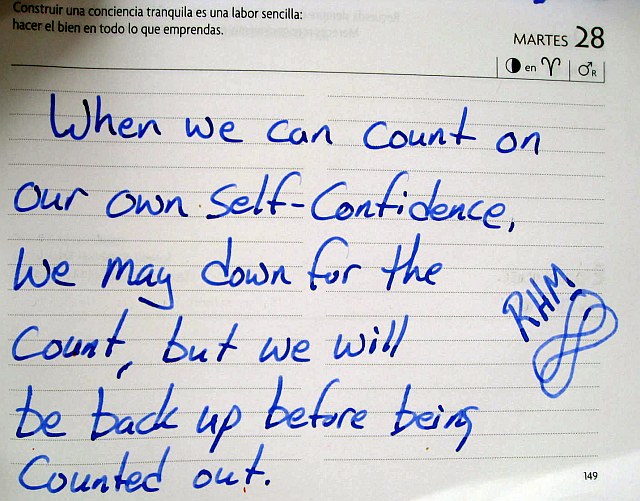 Construir una conciencia tranquila es una labor sencilla:
hacer el bien en todo lo que emprendas.
MARTES 28
en ♈ ♂R
When we can count on
our own self-confidence,
we may down for the
count, but we will
be back up before being
counted out.
RHM
149